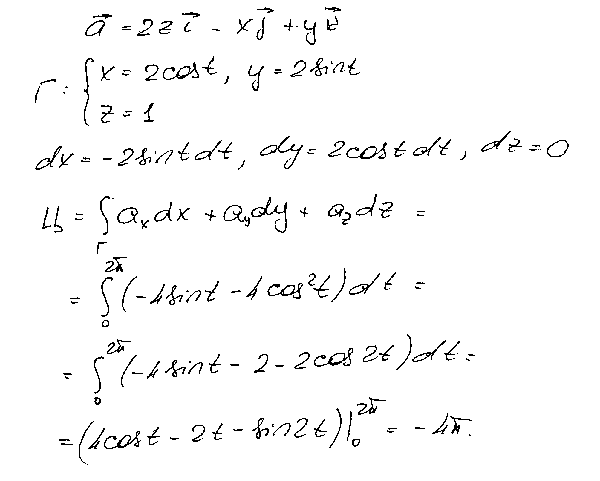 a⃗ = 2z i⃗ - x j⃗ + y k⃗
Г: { x = 2cost, y = 2sint
z = 1
dx = -2sint dt, dy = 2cost dt, dz = 0
Ц = ∫_Г a_x dx + a_y dy + a_z dz =
= ∫_0^{2π} (-4sint - 4cos²t) dt =
= ∫_0^{2π} (-4sint - 2 - 2cos2t) dt =
= (4cost - 2t - sin2t)|_0^{2π} = -4π.